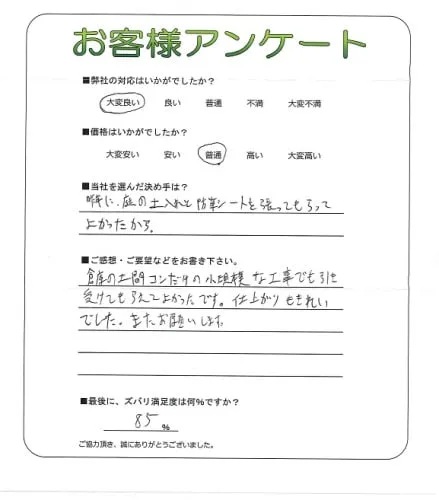 お客様アンケート
■弊社の対応はいかがでしたか？
大変良い 良い 普通 不満 大変不満
■価格はいかがでしたか？
大変安い 安い 普通 高い 大変高い
■当社を選んだ決め手は？
庭の土入れと防草シートを張ってもらって
よかったから。
■ご感想・ご要望などをお書き下さい。
倉庫の土間コンだけの小規模な工事でも引き
受けてもらえてよかったです。仕上がりもきれい
でした。またお願いします。
■最後に、ズバリ満足度は何％ですか？
85％
ご協力頂き、誠にありがとうございました。